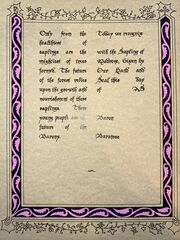 Only from the
healthiest of
saplings are the
mightiest of trees
formed. The future
of the forest relies
upon the growth and
nourishment of these
saplings. These
young people are the
future of the
Barony.
Today we recognize
with the Sapling of
Given by
Our Hand and
Seal this Day
of AS
Baron
Baroness